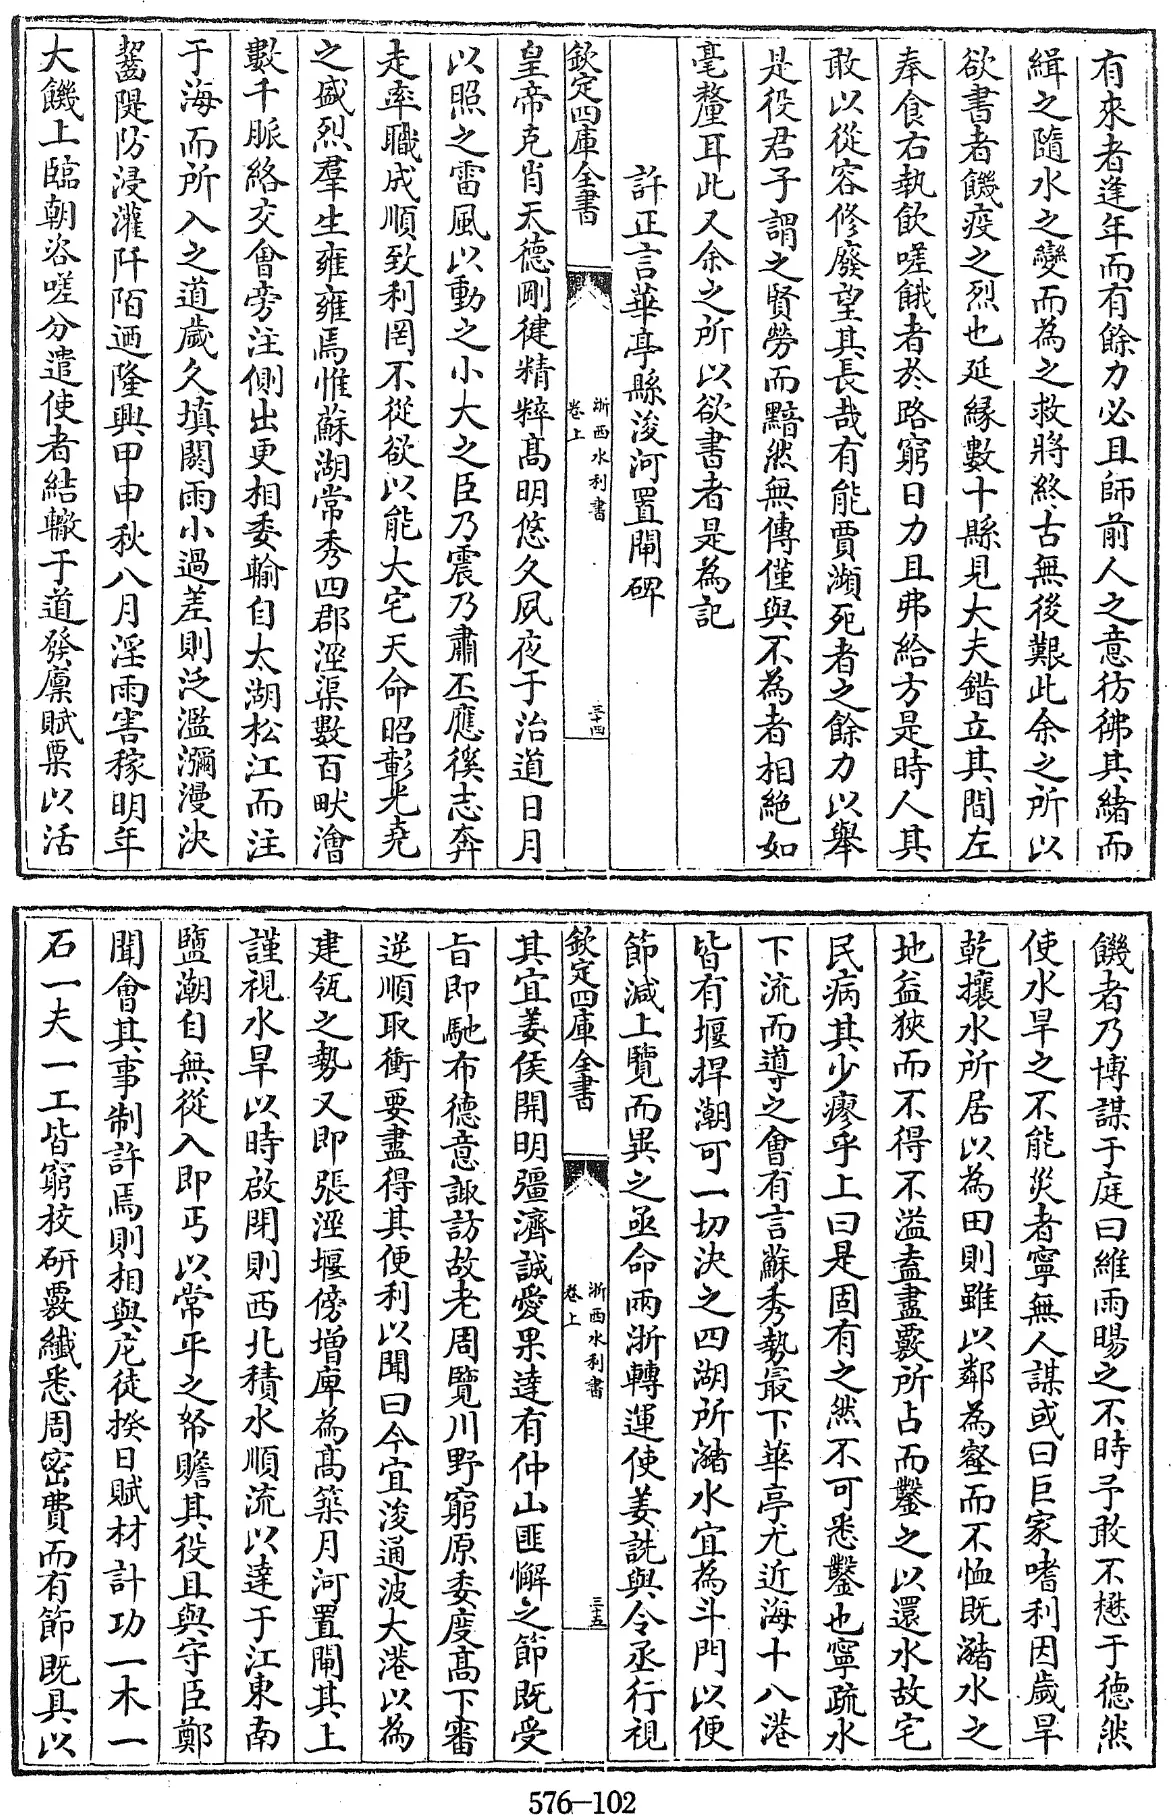 有來者逢年而有餘力必且師前人之意彷彿其緒而
緝之隨水之變而為之救將終古無後艱此余之所以
欲書者饑疫之烈也延緣數十縣見大夫錯立其間左
奉食右執飲嗟餓者於路窮日力且弗給方是時人其
敢以從容修廢望其長哉有能賈瀕死者之餘力以舉
是役君子謂之賢勞而黯然無傳僅與不為者相絶如
毫釐耳此又余之所以欲書者是為記
許正言華亭縣浚河置閘碑
欽定四庫全書
浙西水利書
卷上
三十四
皇帝克肖天德剛健精粹髙明悠久夙夜于治道日月
以照之雷風以動之小大之臣乃震乃肅丕應徯志奔
走率職咸順致利罔不從欲以能大宅天命昭彰光堯
之盛烈羣生雍雍焉惟蘇湖常秀四郡涇渠數百畎澮
數千脈絡交會旁注側出更相委輸自太湖松江而注
于海而所入之道歲久填閼雨小過差則泛濫瀰漫決
齧隄防浸灌阡陌迺隆興甲申秋八月淫雨害稼明年
大饑上臨朝咨嗟分遣使者結轍于道發廪賦粟以活
饑者乃博謀于庭曰維雨暘之不時予敢不懋于德然
使水旱之不能災者寧無人謀或曰巨家嗜利因歲旱
乾攘水所居以為田則雖以鄰為壑而不恤既瀦水之
地益狹而不得不溢盍盡覈所占而鑿之以還水故宅
民病其少瘳乎上曰是固有之然不可悉鑿也寧疏水
下流而導之會有言蘇秀勢最下華亭尤近海十八港
皆有堰捍潮可一切決之四湖所瀦水宜為斗門以便
節減上覽而異之亟命兩浙轉運使姜詵與令丞行視
欽定四庫全書
浙西水利書
卷上
三十五
其宜姜侯開明彊濟誠愛果達有仲山匪懈之節既受
旨即馳布德意諏訪故老周覽川野窮原委度髙下審
逆順取衝要盡得其便利以聞曰今宜浚通波大港以為
建瓴之勢又即張涇堰傍增庳為髙築月河置閘其上
謹視水旱以時啟閉則西北積水順流以達于江東南
鹽潮自無從入即丐以常平之帑贍其役且與守臣鄭
聞會其事制許焉則相與庀徒揆日賦材計功一木一
石一夫一工皆窮校研覈纖悉周密費而有節既具以
576—102